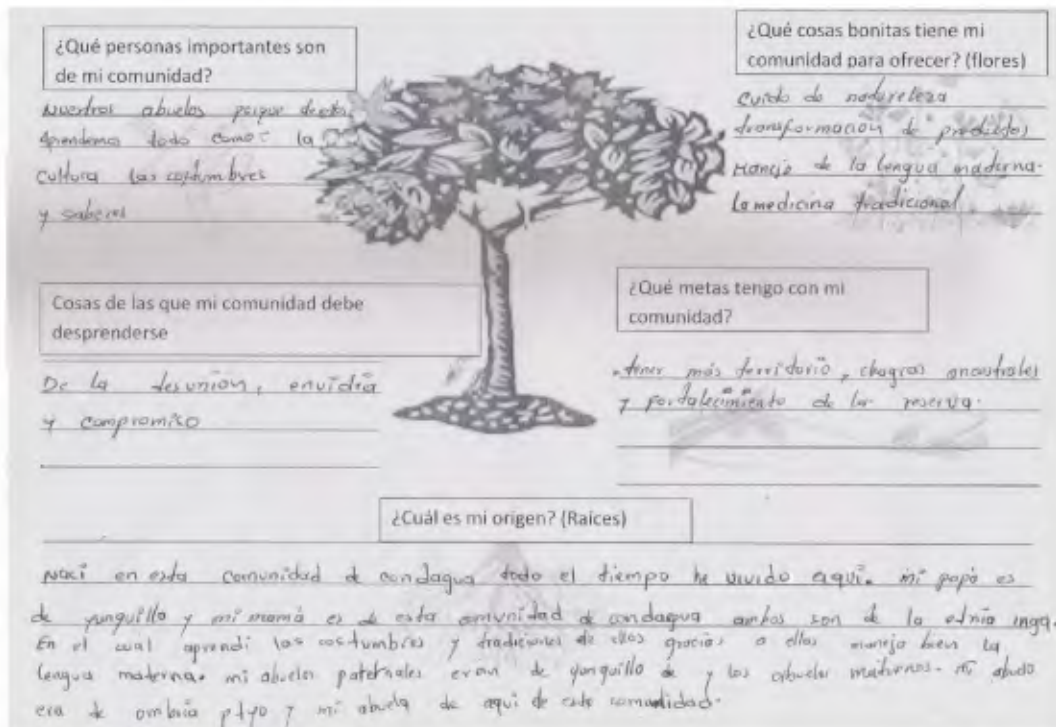 ¿Qué personas importantes son
de mi comunidad?
Nuestros abuelos porque de ellos
aprendemos todo como: la
cultura las costumbres
y saberes
¿Qué cosas bonitas tiene mi
comunidad para ofrecer? (flores)
cuido de naturaleza
transformacion de productos
Manejo de la lengua materna.
La medicina tradicional.
Cosas de las que mi comunidad debe
desprenderse
De la desunion, envidia
y compromiso
¿Qué metas tengo con mi
comunidad?
tener más territorio, chagras ancestrales
y fortalecimiento de la reserva.
¿Cuál es mi origen? (Raíces)
Nací en esta comunidad de condagua todo el tiempo he vivido aquí. mi papá es
de yunguillo y mi mamá es de esta comunidad de condagua ambos son de la etnia inga.
En el cual aprendi las costumbres y tradiciones de ellos gracias a ellos manejo bien la
lengua materna. mi abuelos paternales eran de yunguillo de y los abuelos maternos. mi abuelo
era de ptyo y mi abuela de aqui de esta comunidad.